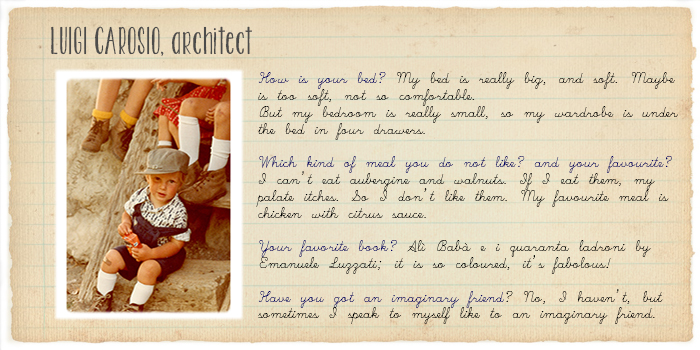 LUIGI CAROSIO, architect
How is your bed? My bed is really big, and soft. Maybe
is too soft, not so comfortable.
But my bedroom is really small, so my wardrobe is under
the bed in four drawers.
Which kind of meal you do not like? and your favourite?
I can't eat aubergine and walnuts. If I eat them, my
palate itches. So I don't like them. My favourite meal is
chicken with citrus sauce.
Your favorite book? Alì Babà e i quaranta ladroni by
Emanuele Luzzati; it is so coloured, it's fabolous!
Have you got an imaginary friend? No, I haven't, but
sometimes I speak to myself like to an imaginary friend.